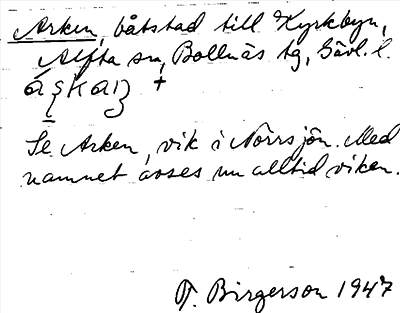 Arken, båtstad till Kyrkbyn,
Alfta sn, Bollnäs tg, Gävl. l.
Se Arken, vik i Norrsjön. Med
namnet avses nu alltid viken.
T. Birgerson 1947